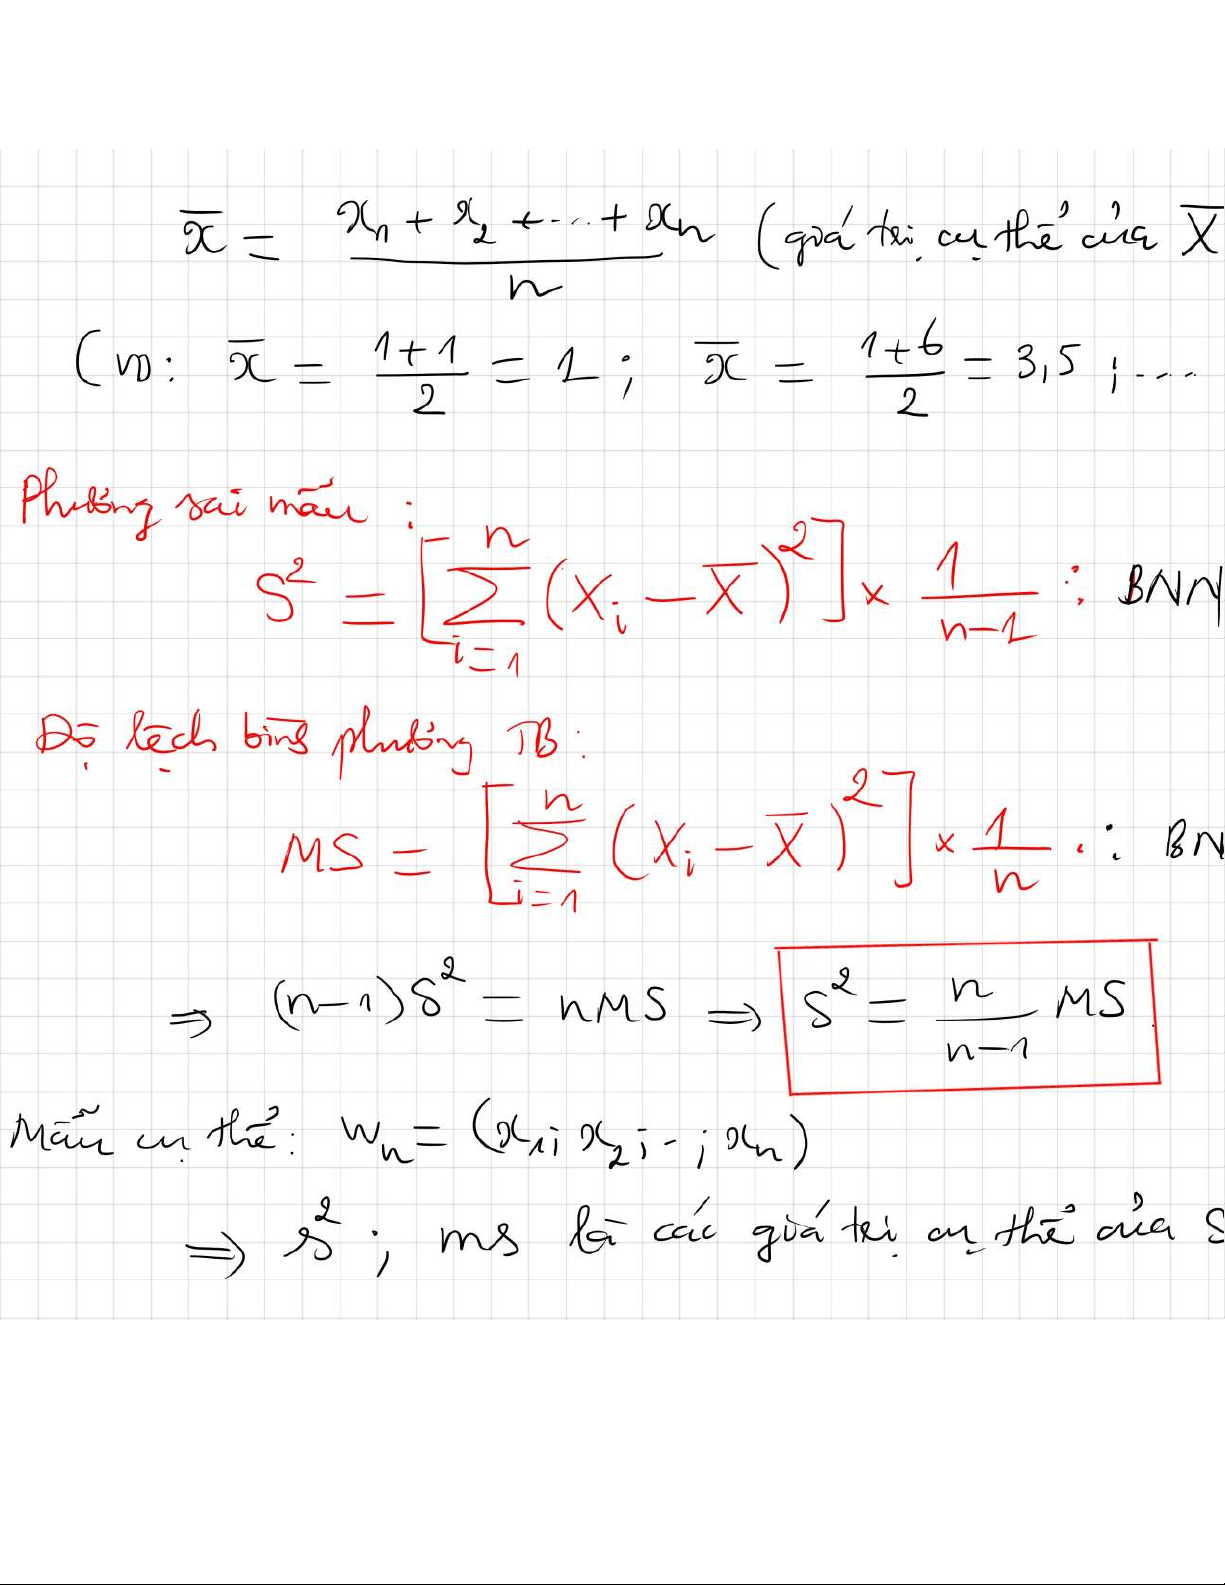 x̄ = (x₁ + x₂ + ... + xₙ) / n (giá trị cụ thể của X̄
(VD: x̄ = (1+1)/2 = 1 ; x̄ = (1+6)/2 = 3,5 ; ...
Phương sai mẫu :
S² = [∑ᵢ₌₁ⁿ (Xᵢ − X̄)²] × 1/(n−1) : BNN
Độ lệch bình phương TB :
MS = [∑ᵢ₌₁ⁿ (Xᵢ − X̄)²] × 1/n . : BN
⇒ (n−1)S² = nMS ⇒ S² = n/(n−1) MS
Mẫu cụ thể: wₙ = (x₁; x₂; -; xₙ)
⇒ s² ; ms là các giá trị cụ thể của S